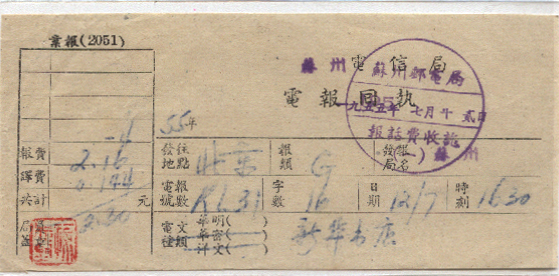 業報(2051)
蘇州電信局
電報回執
蘇州郵電局
一九五五年七月十貳日
報話費收訖
(一)蘇州
55年
報費 2.16
譯費 1.44
共計 元
發往地點 北京
報類 G
發報局名
電報號數 RL31
字數 16
日期 12/7
時刻 1630
電文種類
華明文( )
華密文( )
洋文( )
新华书店